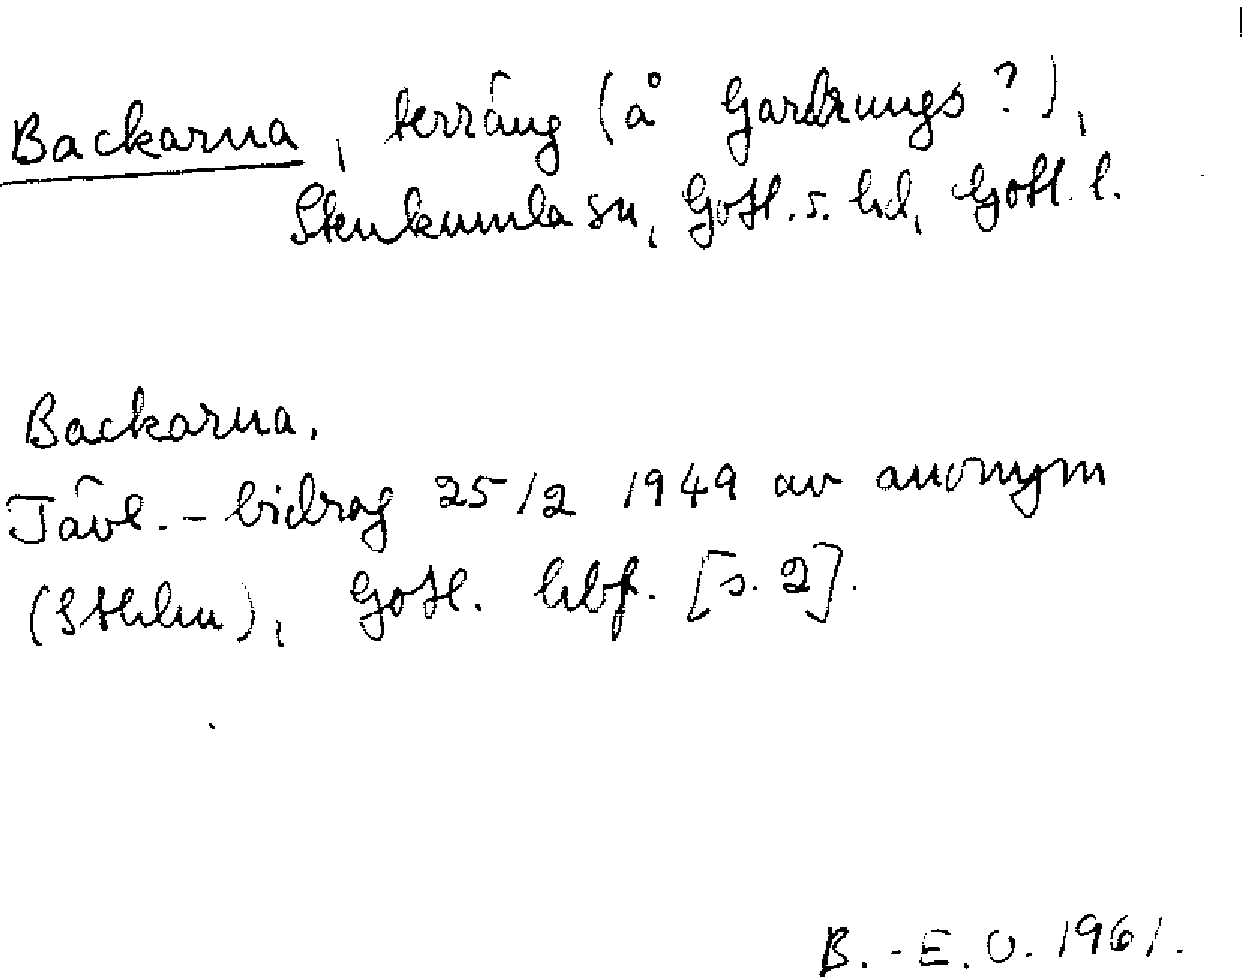 Backarna, terräng (å Gardrungs?),
Stenkumla sn, Gotl. s. hd, Gotl. l.
Backarna.
Tävl.-bidrag 25/2 1949 av anonym
(Sthlm), Gotl. hbf. [s. 2].
B.-E. O. 1961.